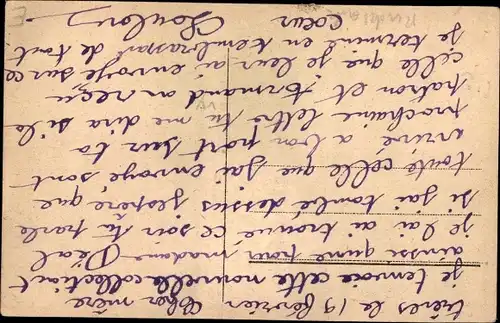 trèves le 19 fevrier
Cher mère
je tenvoie cette nouvelle collection
ainsi qune pour madame Déal
je lai ai trouvé ce soir tu parle
si jai tombé dessus jespère que
toute celle que jai envoyé sont
arrivé a bon port sur ta
prochaine lettre tu me dira si le
patron et Armand on reçu
celle que je leur ai envoyé sur ce
je termine en tembrassant de tout
cœur
Loulou